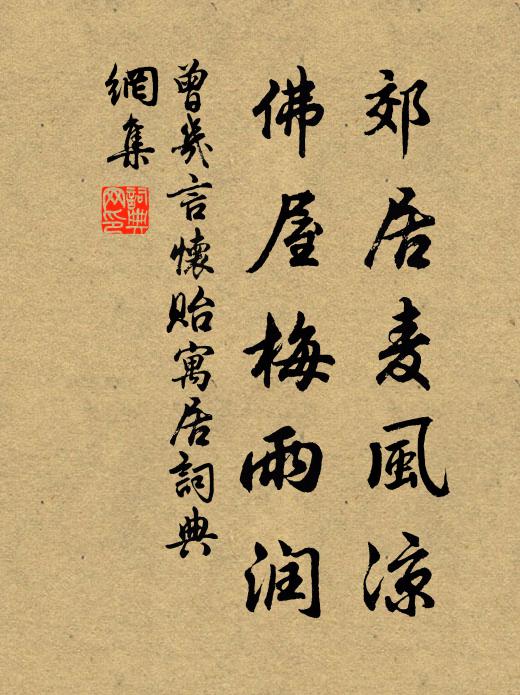 郊居麦風凉
佛屋梅雨润
曾幾言懷貽寓居詞典
網集
詞典網印